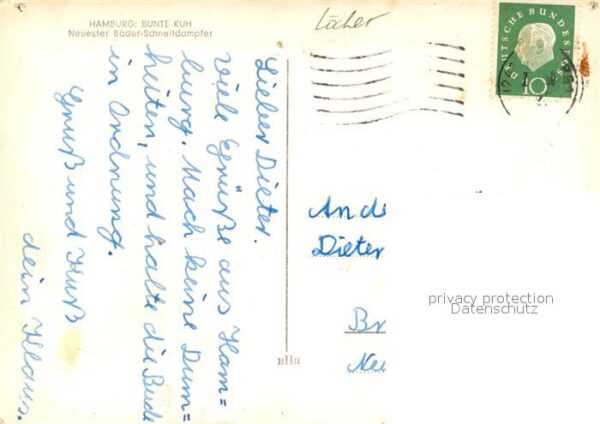 HAMBURG: BUNTE KUH
Neuester Bäder-Schnelldampfer
Löcher
DEUTSCHE BUNDESPOST
10
Lieber Dieter.
Viele Grüße aus Ham=
burg. Mach keine Dum=
heiten, und halte die Bude
in Ordnung.
Gruß und Kuß
dein Klaus.
An de
Dieter
Br
Neu
privacy protection
Datenschutz